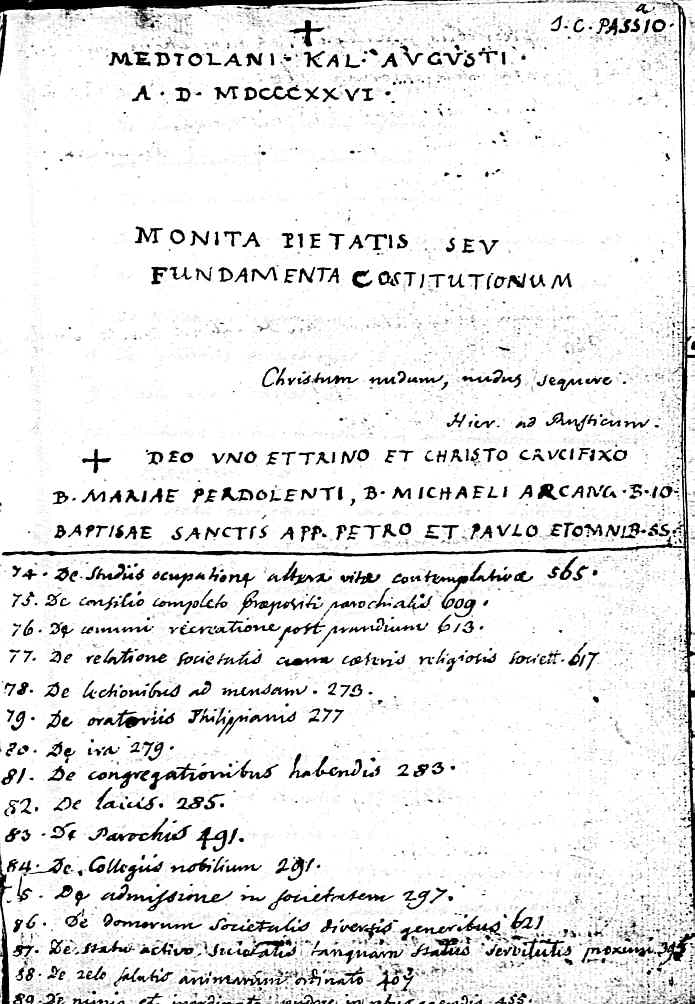 a
J. C. PASSIO.
+
MEDIOLANI· KAL· AVGVSTI·
A· D· MDCCCXXVI·
MONITA PIETATIS SEV
FUNDAMENTA COSTITUTIONUM
Christum nudum, nudus sequere.
Hier. ad Rusticum.
+ DEO VNO ET TRINO ET CHRISTO CRVCIFIXO
B· MARIAE PERDOLENTI, B· MICHAELI ARCANG· B· IO·
BAPTISAE SANCTIS APP. PETRO ET PAVLO ET OMNIB· SS·
74. De studiis ocupatione altera vitæ contemplativæ 565.
75. De consilio completo Præpositi parochialis 609.
76. De comuni recreatione post prandium 613.
77. De relatione societatis cum cæteris religiosis societt. 617
78. De lectionibus ad mensam. 273.
79. De oratoriis Philippianis 277
80. De ira 279.
81. De congregationibus habendis 283.
82. De laicis. 285.
83. De Parochis 491.
84. De Collegiis nobilium 291.
5. De admissione in societatem 297.
86. De domorum societatis diversis generibus 621
87. De statu activo societatis tanquam status servitutis proximi
88. De zelo salutis animarum ordinato 407
89. De nimio et